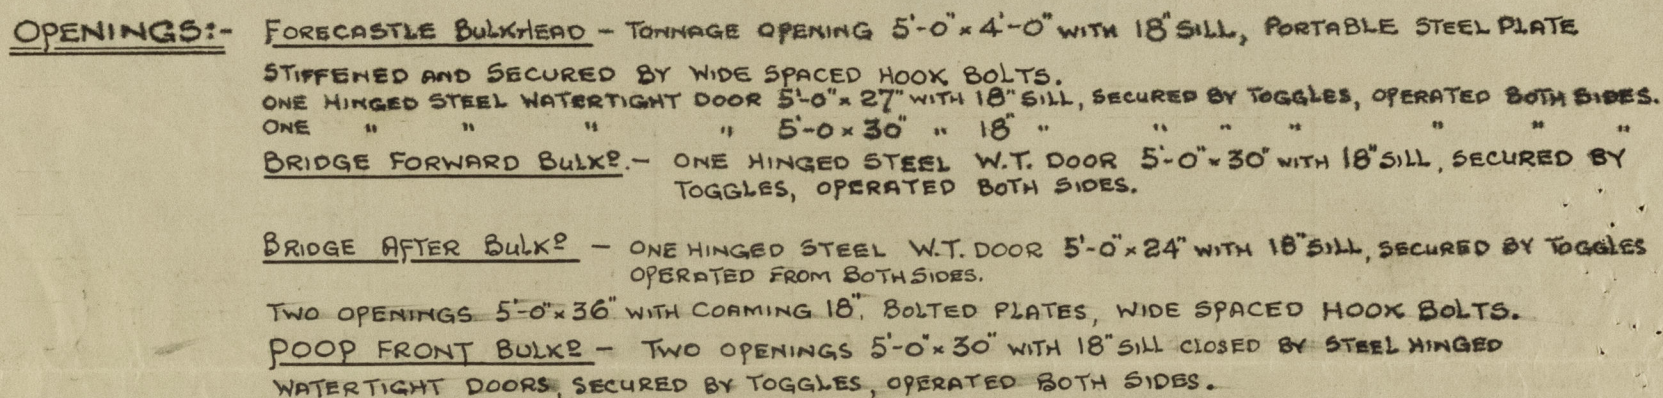 OPENINGS:- FORECASTLE BULKHEAD - TONNAGE OPENING 5'-0" × 4'-0" WITH 18" SILL, PORTABLE STEEL PLATE
STIFFENED AND SECURED BY WIDE SPACED HOOK BOLTS.
ONE HINGED STEEL WATERTIGHT DOOR 5'-0" × 27" WITH 18" SILL, SECURED BY TOGGLES, OPERATED BOTH SIDES.
ONE " " " " 5'-0 × 30" " 18" " " " " " " "
BRIDGE FORWARD BULKD.- ONE HINGED STEEL W.T. DOOR 5'-0" × 30" WITH 18" SILL, SECURED BY
TOGGLES, OPERATED BOTH SIDES.
BRIDGE AFTER BULKD - ONE HINGED STEEL W.T. DOOR 5'-0" × 24" WITH 18" SILL, SECURED BY TOGGLES
OPERATED FROM BOTH SIDES.
TWO OPENINGS 5'-0" × 36" WITH COAMING 18", BOLTED PLATES, WIDE SPACED HOOK BOLTS.
POOP FRONT BULKD - TWO OPENINGS 5'-0" × 30" WITH 18" SILL CLOSED BY STEEL HINGED
WATERTIGHT DOORS, SECURED BY TOGGLES, OPERATED BOTH SIDES.